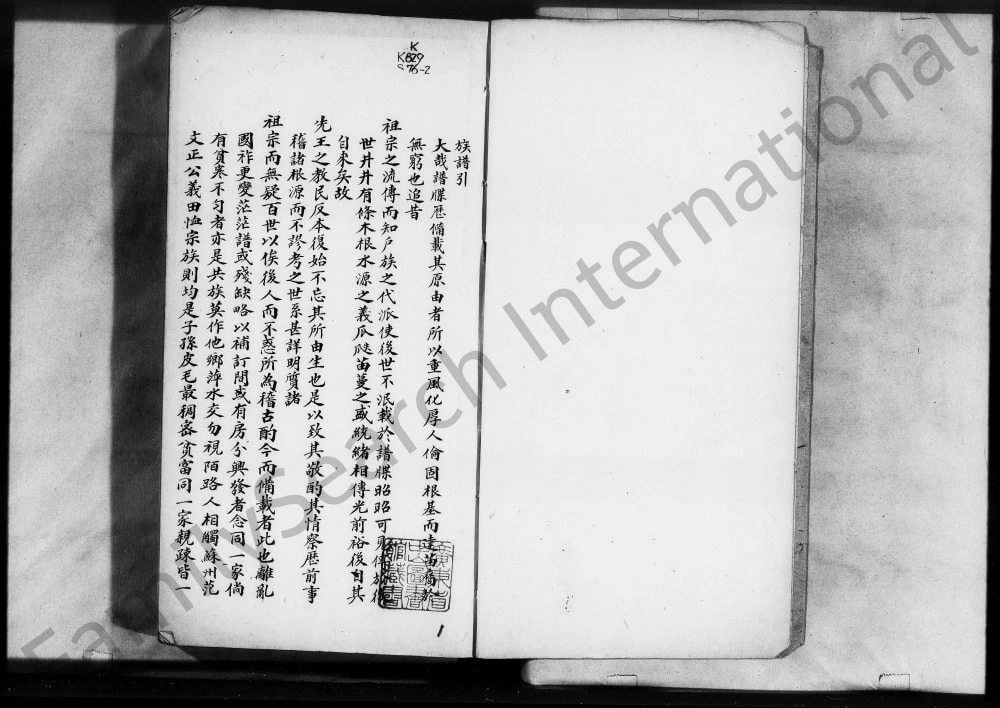 K
K829
S76-2
族譜引
大哉譜牒歷備載其原由者所以重風化厚人倫固根基而達苗裔於
無窮也追昔
祖宗之流傳而知戶族之代派使後世不泯載於譜牒昭昭可
世井井有條木根水源之義瓜瓞苗蔓之盛統緒相傳光前裕後自其
自来矣故
先王之教民反本復始不忘其所由生也是以致其敬酌其情察歷前事
稽諸根源而不謬考之世系甚詳明質諸
祖宗而無疑百世以俟後人而不惑所為稽古酌今而備載者此也離亂
國祚更變茫茫譜或殘缺略以補訂間或有房分興發者念同一家倘
有貧寒不匀者亦是共族莫作他鄉萍水交勿視陌路人相觸蘇州范
文正公義田恤宗族則均是子孫皮毛最稠密貧富同一家親疎皆一
廣東省
中山圖書
館藏書
1
FamilySearch International